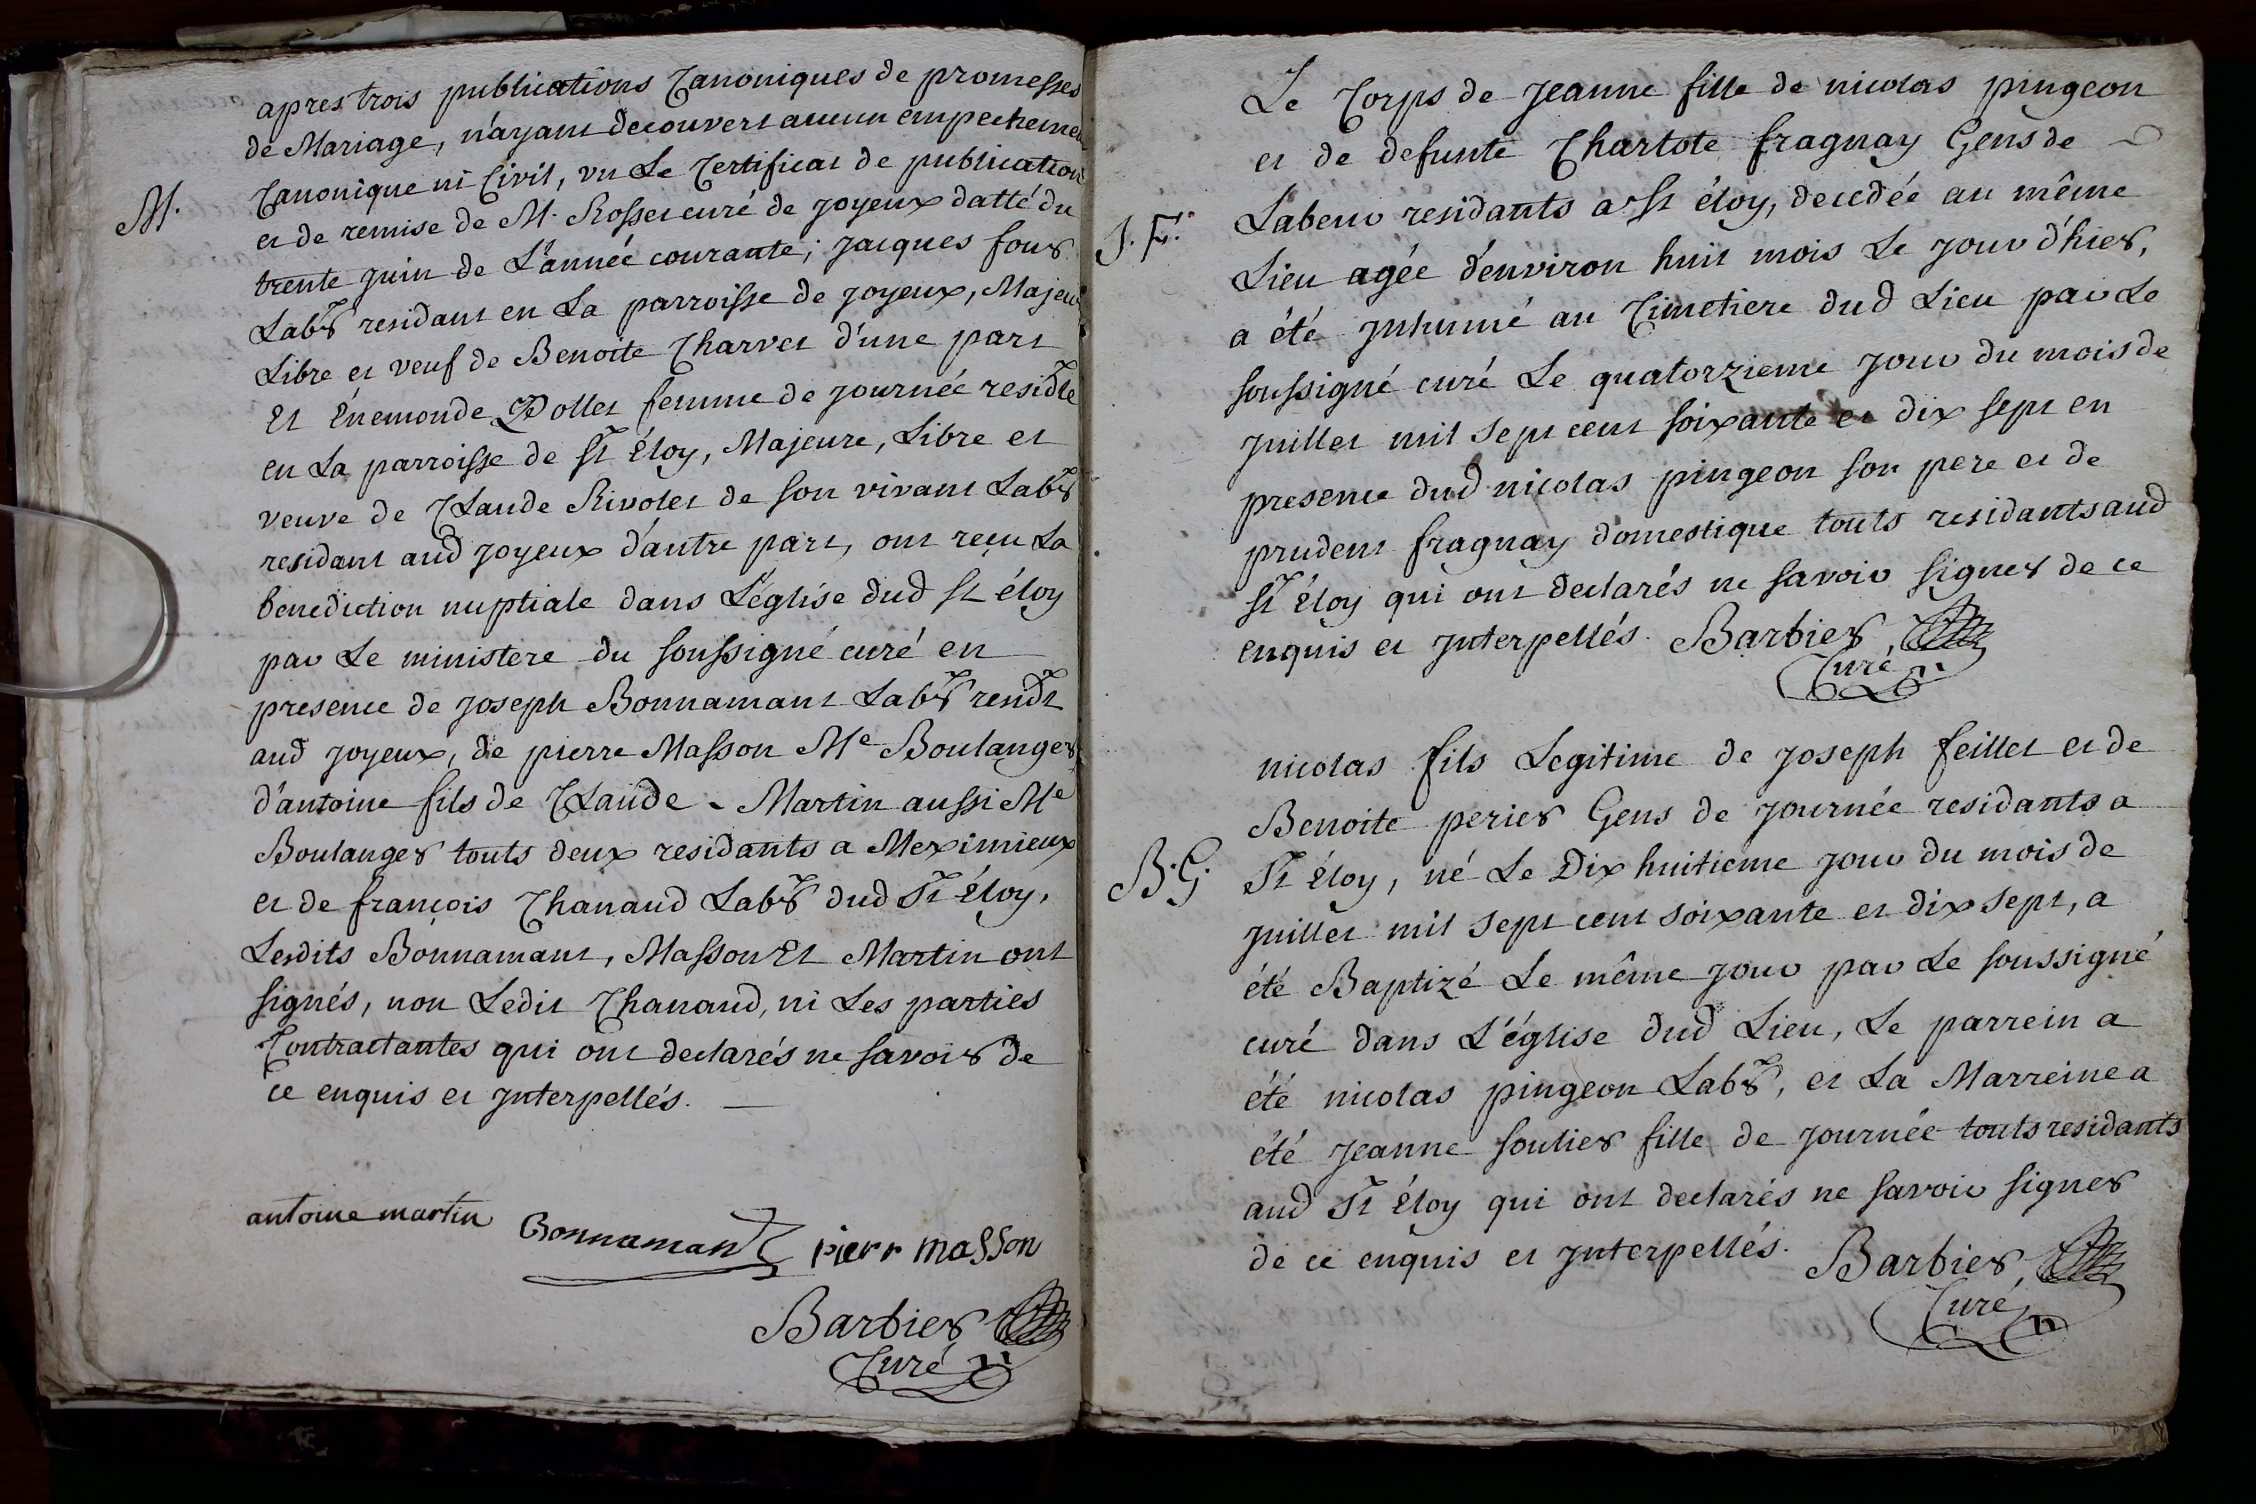 apres trois publications Canoniques de promesses
de Mariage, n'ayant decouvert aucun empecheme
M.
Canonique ni Civil, vu Le Certificat de publication
et de remise de M. Rosset curé de joyeux datté du
trente juin de L'année courante; jacques four
Labr residant en La parroisse de joyeux, Majeur
Libre et veuf de Benoite Charvet d'une part
Et Énemonde Dollet femme de journée residte
en La parroisse de St Éloy, Majeure, Libre et
veuve de Claude Rivolet de son vivant Labr
residant aud joyeux d'autre part, ont reçu La
benediction nuptiale dans L'église dud St éloy
par Le ministere du soussigné curé en
presence de joseph Bonnamant Labr residt
aud joyeux, de pierre Masson Me Boulanger
d'antoine fils de Claude Martin aussi Me
Boulanger touts deux residants a Meximieux
et de françois Chanaud Labr dud St Éloy,
Lesdits Bonnamant, Masson Et Martin ont
signés, non Ledit Chanaud, ni Les parties
Contractantes qui ont declarés ne savoir de
ce enquis et jnterpellés.
antoine martin Bonnamant pierr masson
Barbier,
Curé
Le Corps de jeanne fille de nicolas pingeon
et de defunte Charlote fragnay Gens de
J. F.
Labeur residants a St éloy, decedée au même
Lieu agée d'environ huit mois Le jour d'hier,
a été jnhumé au Cimetiere dud Lieu par Le
soussigné curé Le quatorzieme jour du mois de
juillet mil sept cent soixante et dix sept en
presence dud nicolas pingeon son pere et de
prudent fragnay domestique touts residants aud
St Éloy qui ont declarés ne savoir signer de ce
enquis et jnterpellés. Barbier,
Curé
nicolas fils Legitime de joseph feillet et de
Benoite perier Gens de journée residants a
B. G.
St Éloy, né Le Dix huitieme jour du mois de
juillet mil sept cent soixante et dix sept, a
été Baptizé Le même jour par Le soussigné
curé dans L'église dud Lieu, Le parrein a
été nicolas pingeon Labr, et La Marreine a
été jeanne soulier fille de journée touts residants
aud St Éloy qui ont declarés ne savoir signer
de ce enquis et jnterpellés. Barbier,
Curé